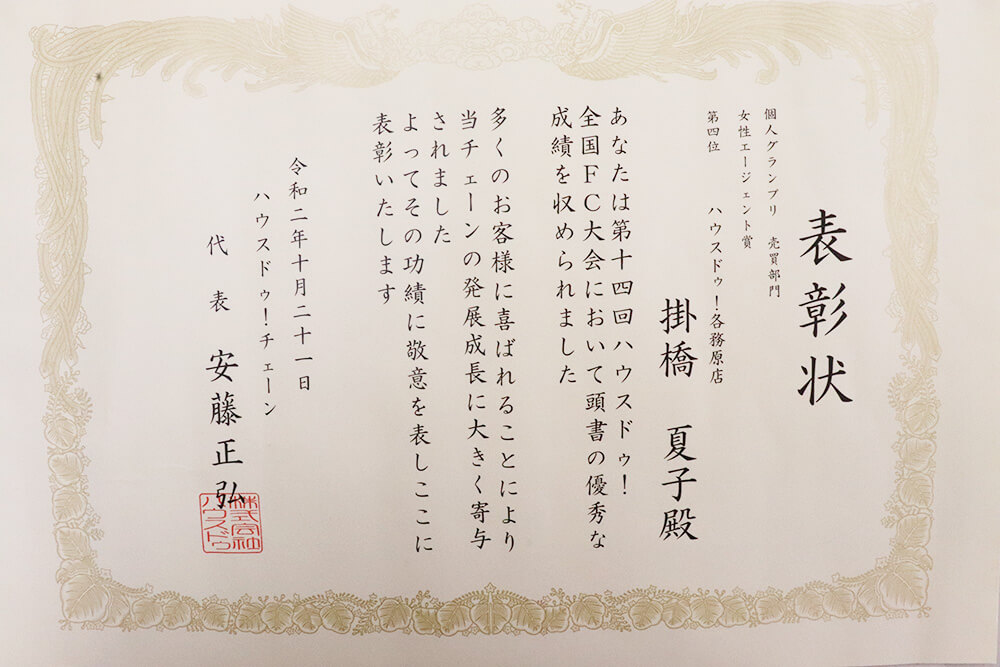 表彰状
個人グランプリ 売買部門
女性エージェント賞
第四位 ハウスドゥ！各務原店
掛橋 夏子殿
あなたは第十四回ハウスドゥ！
全国ＦＣ大会において頭書の優秀な
成績を収められました
多くのお客様に喜ばれることにより
当チェーンの発展成長に大きく寄与
されました
よってその功績に敬意を表しここに
表彰いたします
令和二年十月二十一日
ハウスドゥ！チェーン
代表 安藤正弘
株式会社
ハウスドゥ